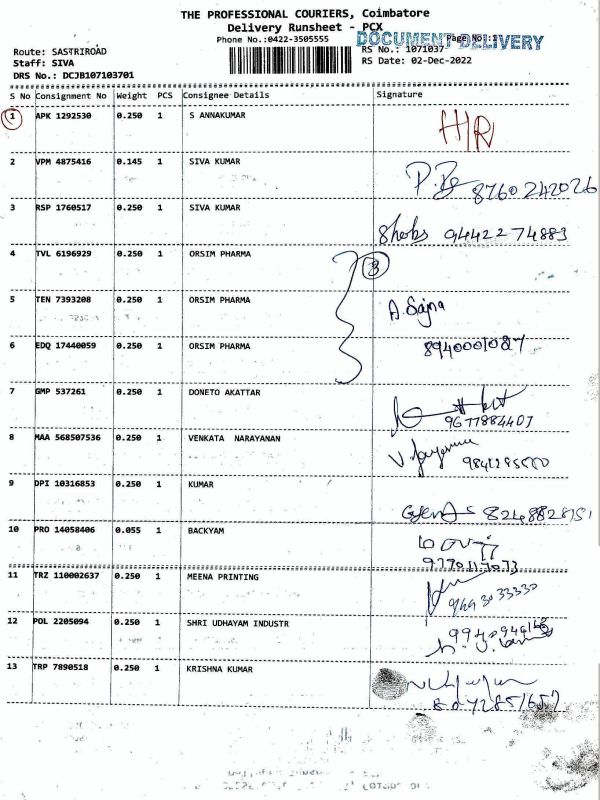 THE PROFESSIONAL COURIERS, Coimbatore
Delivery Runsheet - PCX
Phone No.:0422-3505555
DOCUMENT DELIVERY
Page No.:1
Route: SASTRIROAD
Staff: SIVA
DRS No.: DCJB107103701
RS No.: 1071037
RS Date: 02-Dec-2022
S No Consignment No Weight PCS Consignee Details Signature
1 APK 1292530 0.250 1 S ANNAKUMAR H/R
2 VPM 4875416 0.145 1 SIVA KUMAR
8760242026
3 RSP 1760517 0.250 1 SIVA KUMAR
94422 74883
4 TVL 6196929 0.250 1 ORSIM PHARMA 3
5 TEN 7393208 0.250 1 ORSIM PHARMA A. Sajna
6 EDQ 17440059 0.250 1 ORSIM PHARMA 8940001087
7 GMP 537261 0.250 1 DONETO AKATTAR
9677884407
8 MAA 568507536 0.250 1 VENKATA NARAYANAN
9 DPI 10316853 0.250 1 KUMAR
10 PRO 14058406 0.055 1 BACKYAM
11 TRZ 110002637 0.250 1 MEENA PRINTING
12 POL 2205094 0.250 1 SHRI UDHAYAM INDUSTR
13 TRP 7890518 0.250 1 KRISHNA KUMAR
8072851657